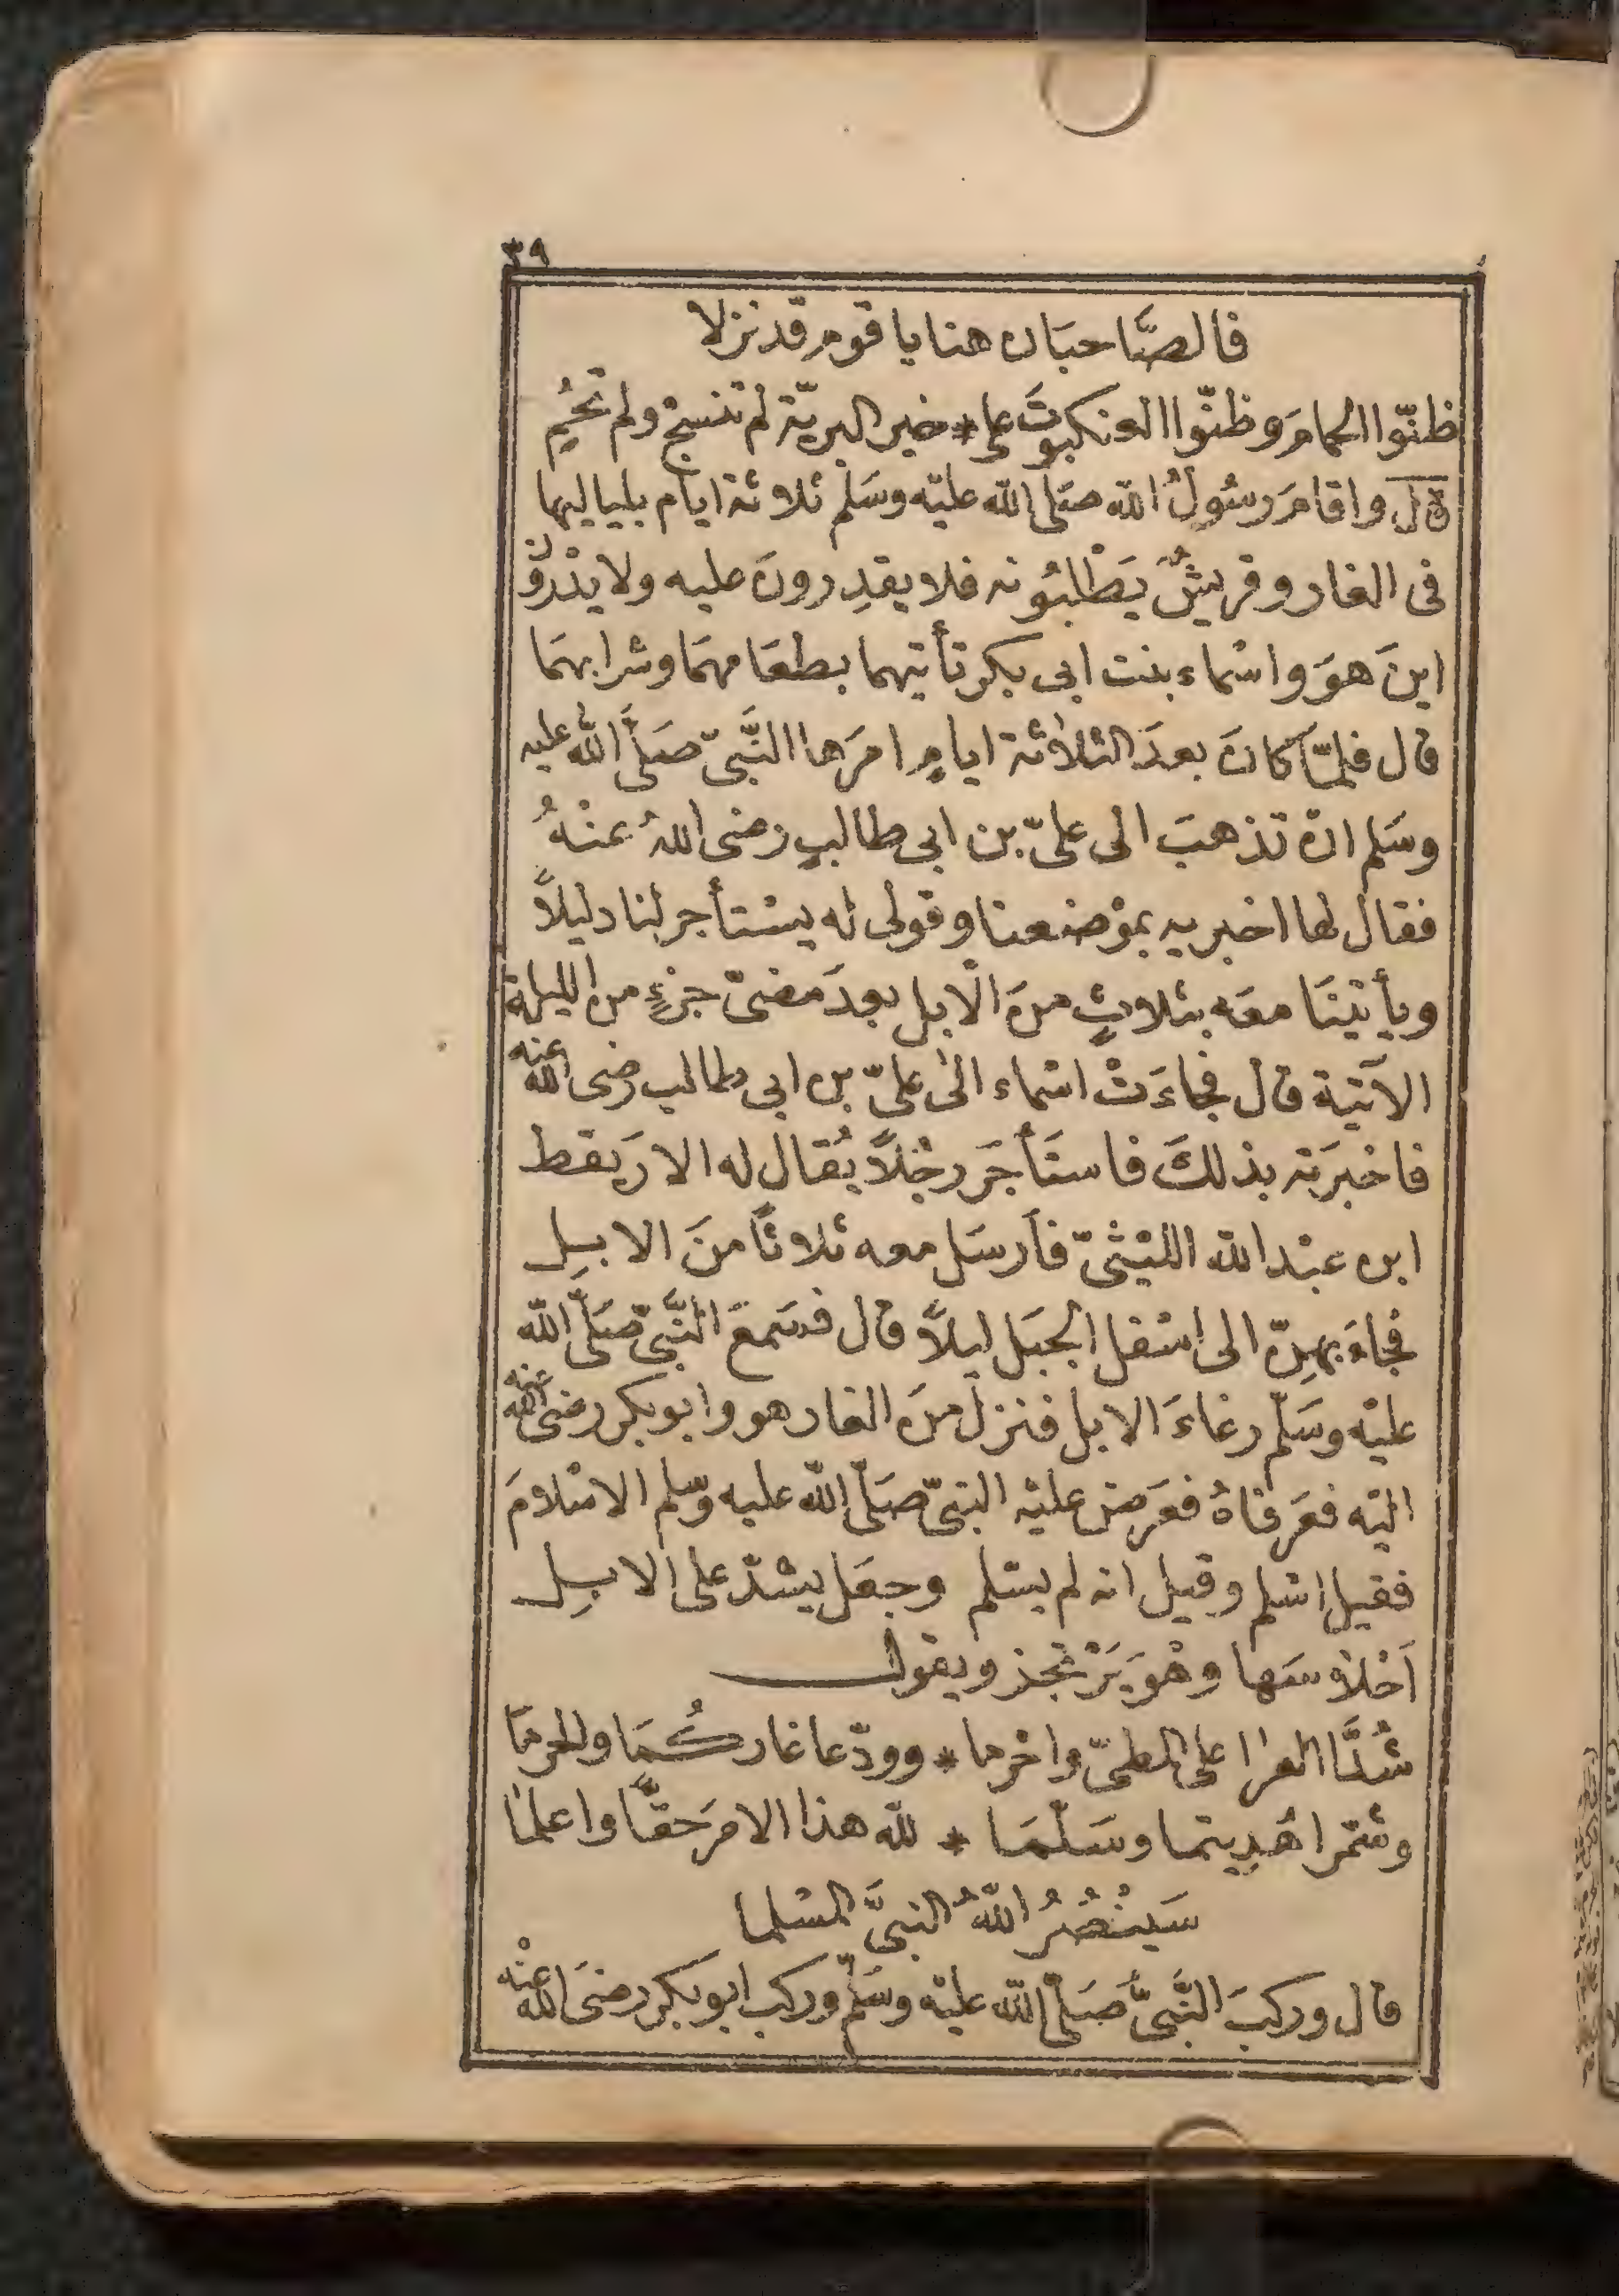 ٣٩
فالصَّاحبَان هنا يا قوم قد نزلا
ظنّوا الحمامَ وظنّوا العنكبوتَ على * خير البريّة لم تنسج ولم تحُمِ
قال واقامَ رسُولُ الله صَلى الله عليْه وسَلم ثلاثة ايام بلياليها
فى الغار وقريشٌ يَطْلبُونه فلا يقدِرونَ عليه ولا يدْرون
اينَ هوَ واسْماء بنت ابى بكر تأتيهما بطعَامهمَا وشرابهمَا
قال فلمّا كانَ بعدَ الثلاثة ايامٍ امرَها النَّبىّ صَلَّى اللهُ عليه
وسَلم ان تذهبَ الى علىّ بن ابى طالبٍ رضى اللهُ عنْهُ
فقال لها اخبريه بموْضعنا وقولى له يسْتأجر لنا دليلاً
ويأتينَا معَه بثلاثٍ منَ الابل بعدَ مضىّ جزءٍ من الليلة
الآتية قال فجاءَتْ اسْماء الى علىّ بن ابى طالب رضى الله عنه
فاخبرَته بذلكَ فاستَأجَر رجْلاً يُقال له الارَيقط
ابن عبْد الله الليْثىّ فأرسَل معه ثلاثاً منَ الابِل
فجاءَ بهِنّ الى اسْفل الجبَل ليلاً قال فسَمعَ النَّبىّ صَلَّى الله
عليْه وسَلّم رغاءَ الابل فنزلَ منَ الغار هو وابو بكر رضى الله عنه
اليْه فعَرفاهُ فعَرضَ عليْه النبىّ صَلّى الله عليه وسّلم الاسْلامَ
فقيل اسْلم وقيل انه لم يسْلم وجعَل يشدّ على الابِل
اَحْلاسَها وهْوَ يَرْتجز ويقول
شُدَّا العرا على المطىّ واخرما * وودّعا غاركُمَا والحرمَا
وشمّرا هُدِيتما وسَلّمَا * لله هذا الامرَ حقّاً واعلما
سَيَنْصُرُ اللّهُ النبىَّ المسْلما
قال وركبَ النَّبىُّ صَلَّى اللّه عليْه وسَلّم وركبَ ابو بكر رضىَ الله عنْه